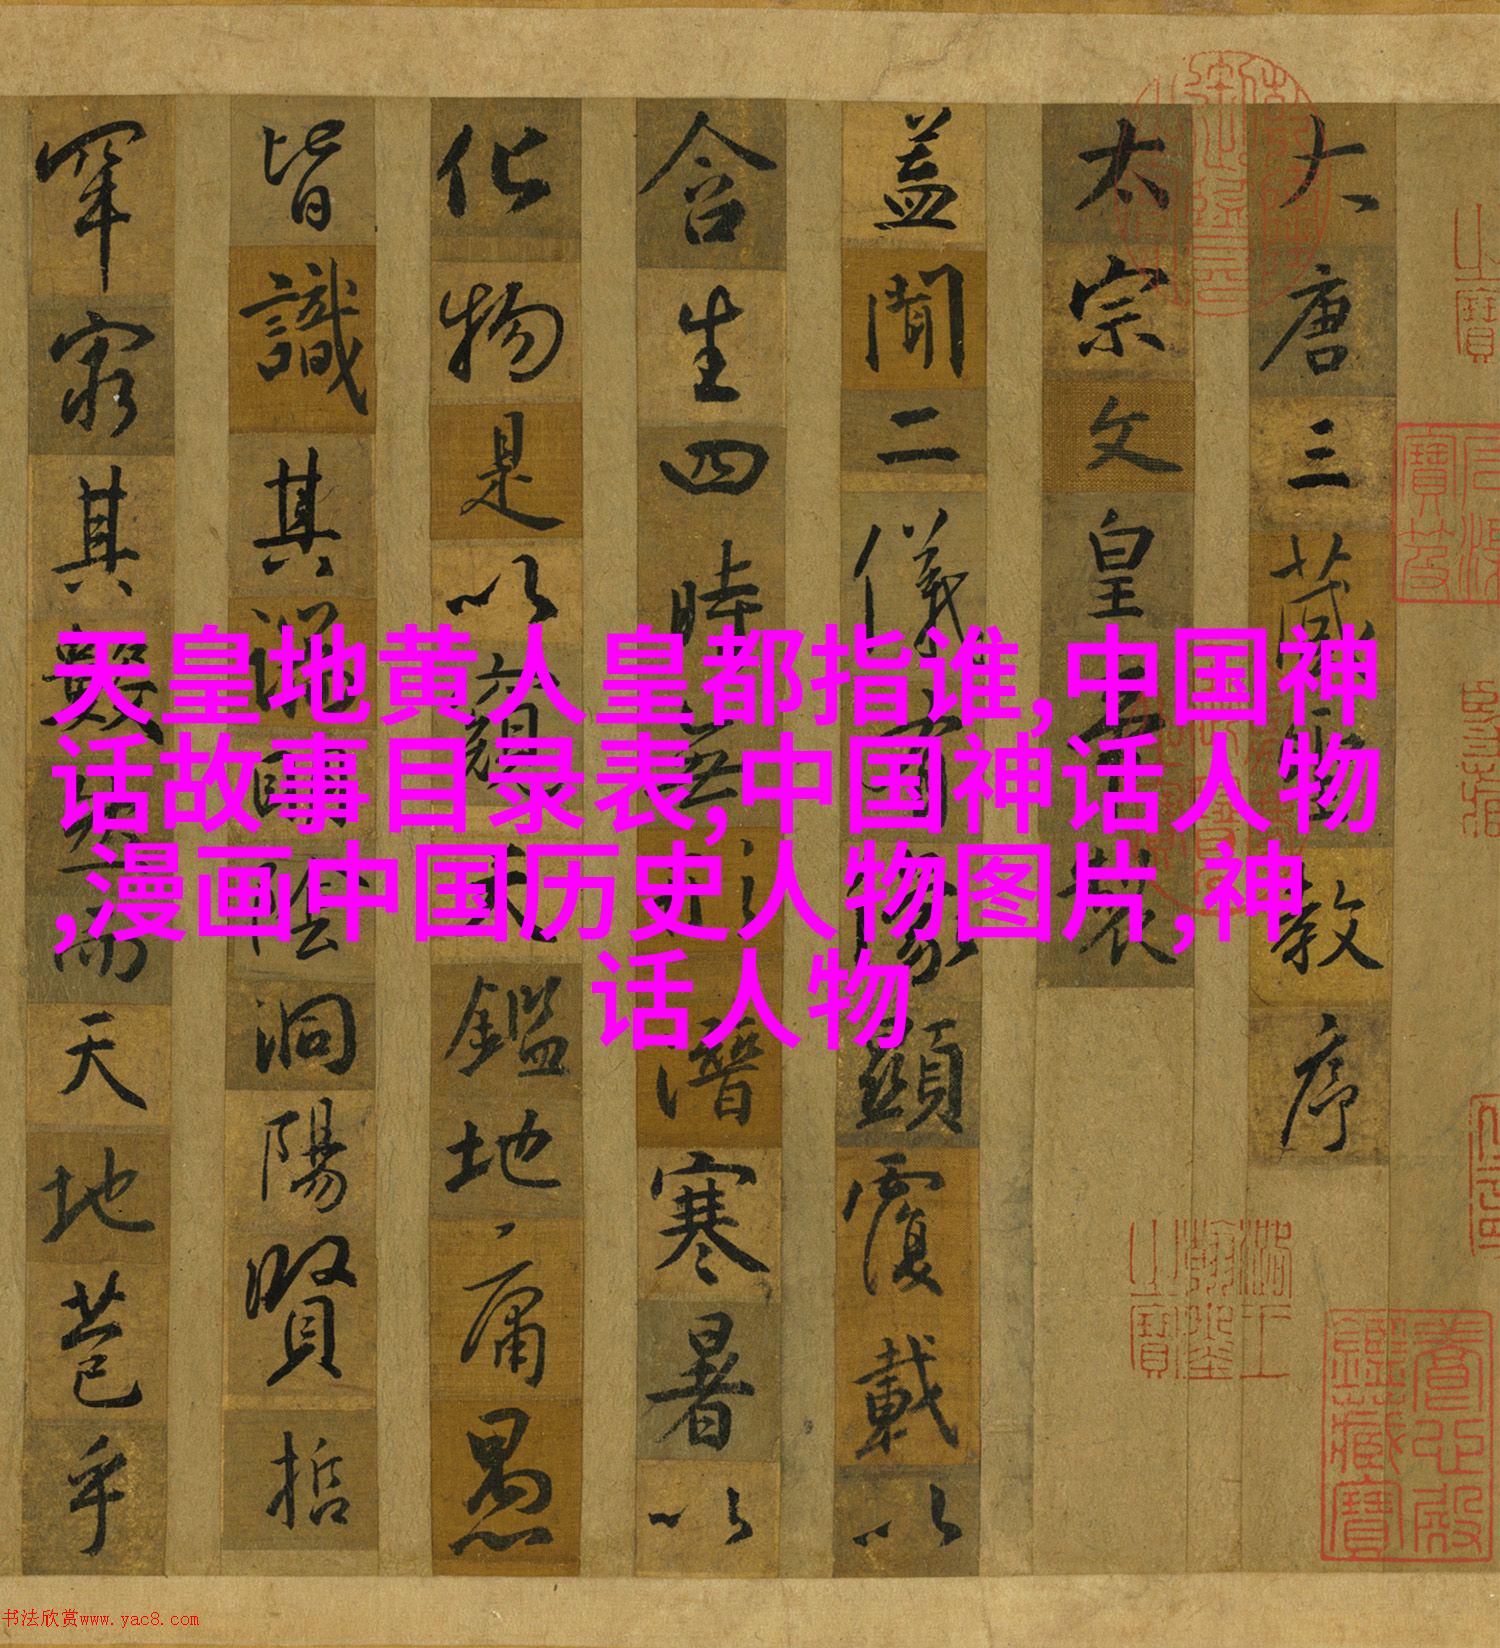 大唐三藏聖教序
太宗文皇帝製
蓋聞二儀有像顯覆載以
含生四時無形潛寒暑以
化物是以窺天鑑地庸愚
皆識其端明陰洞陽賢哲
罕窮其數然而天地苞乎
天皇地黄人皇都指谁,中国神
话故事目录表,中国神话人物
,漫画中国历史人物图片,神
话人物
養心殿鑑藏寶
书法欣赏www.yac8.com